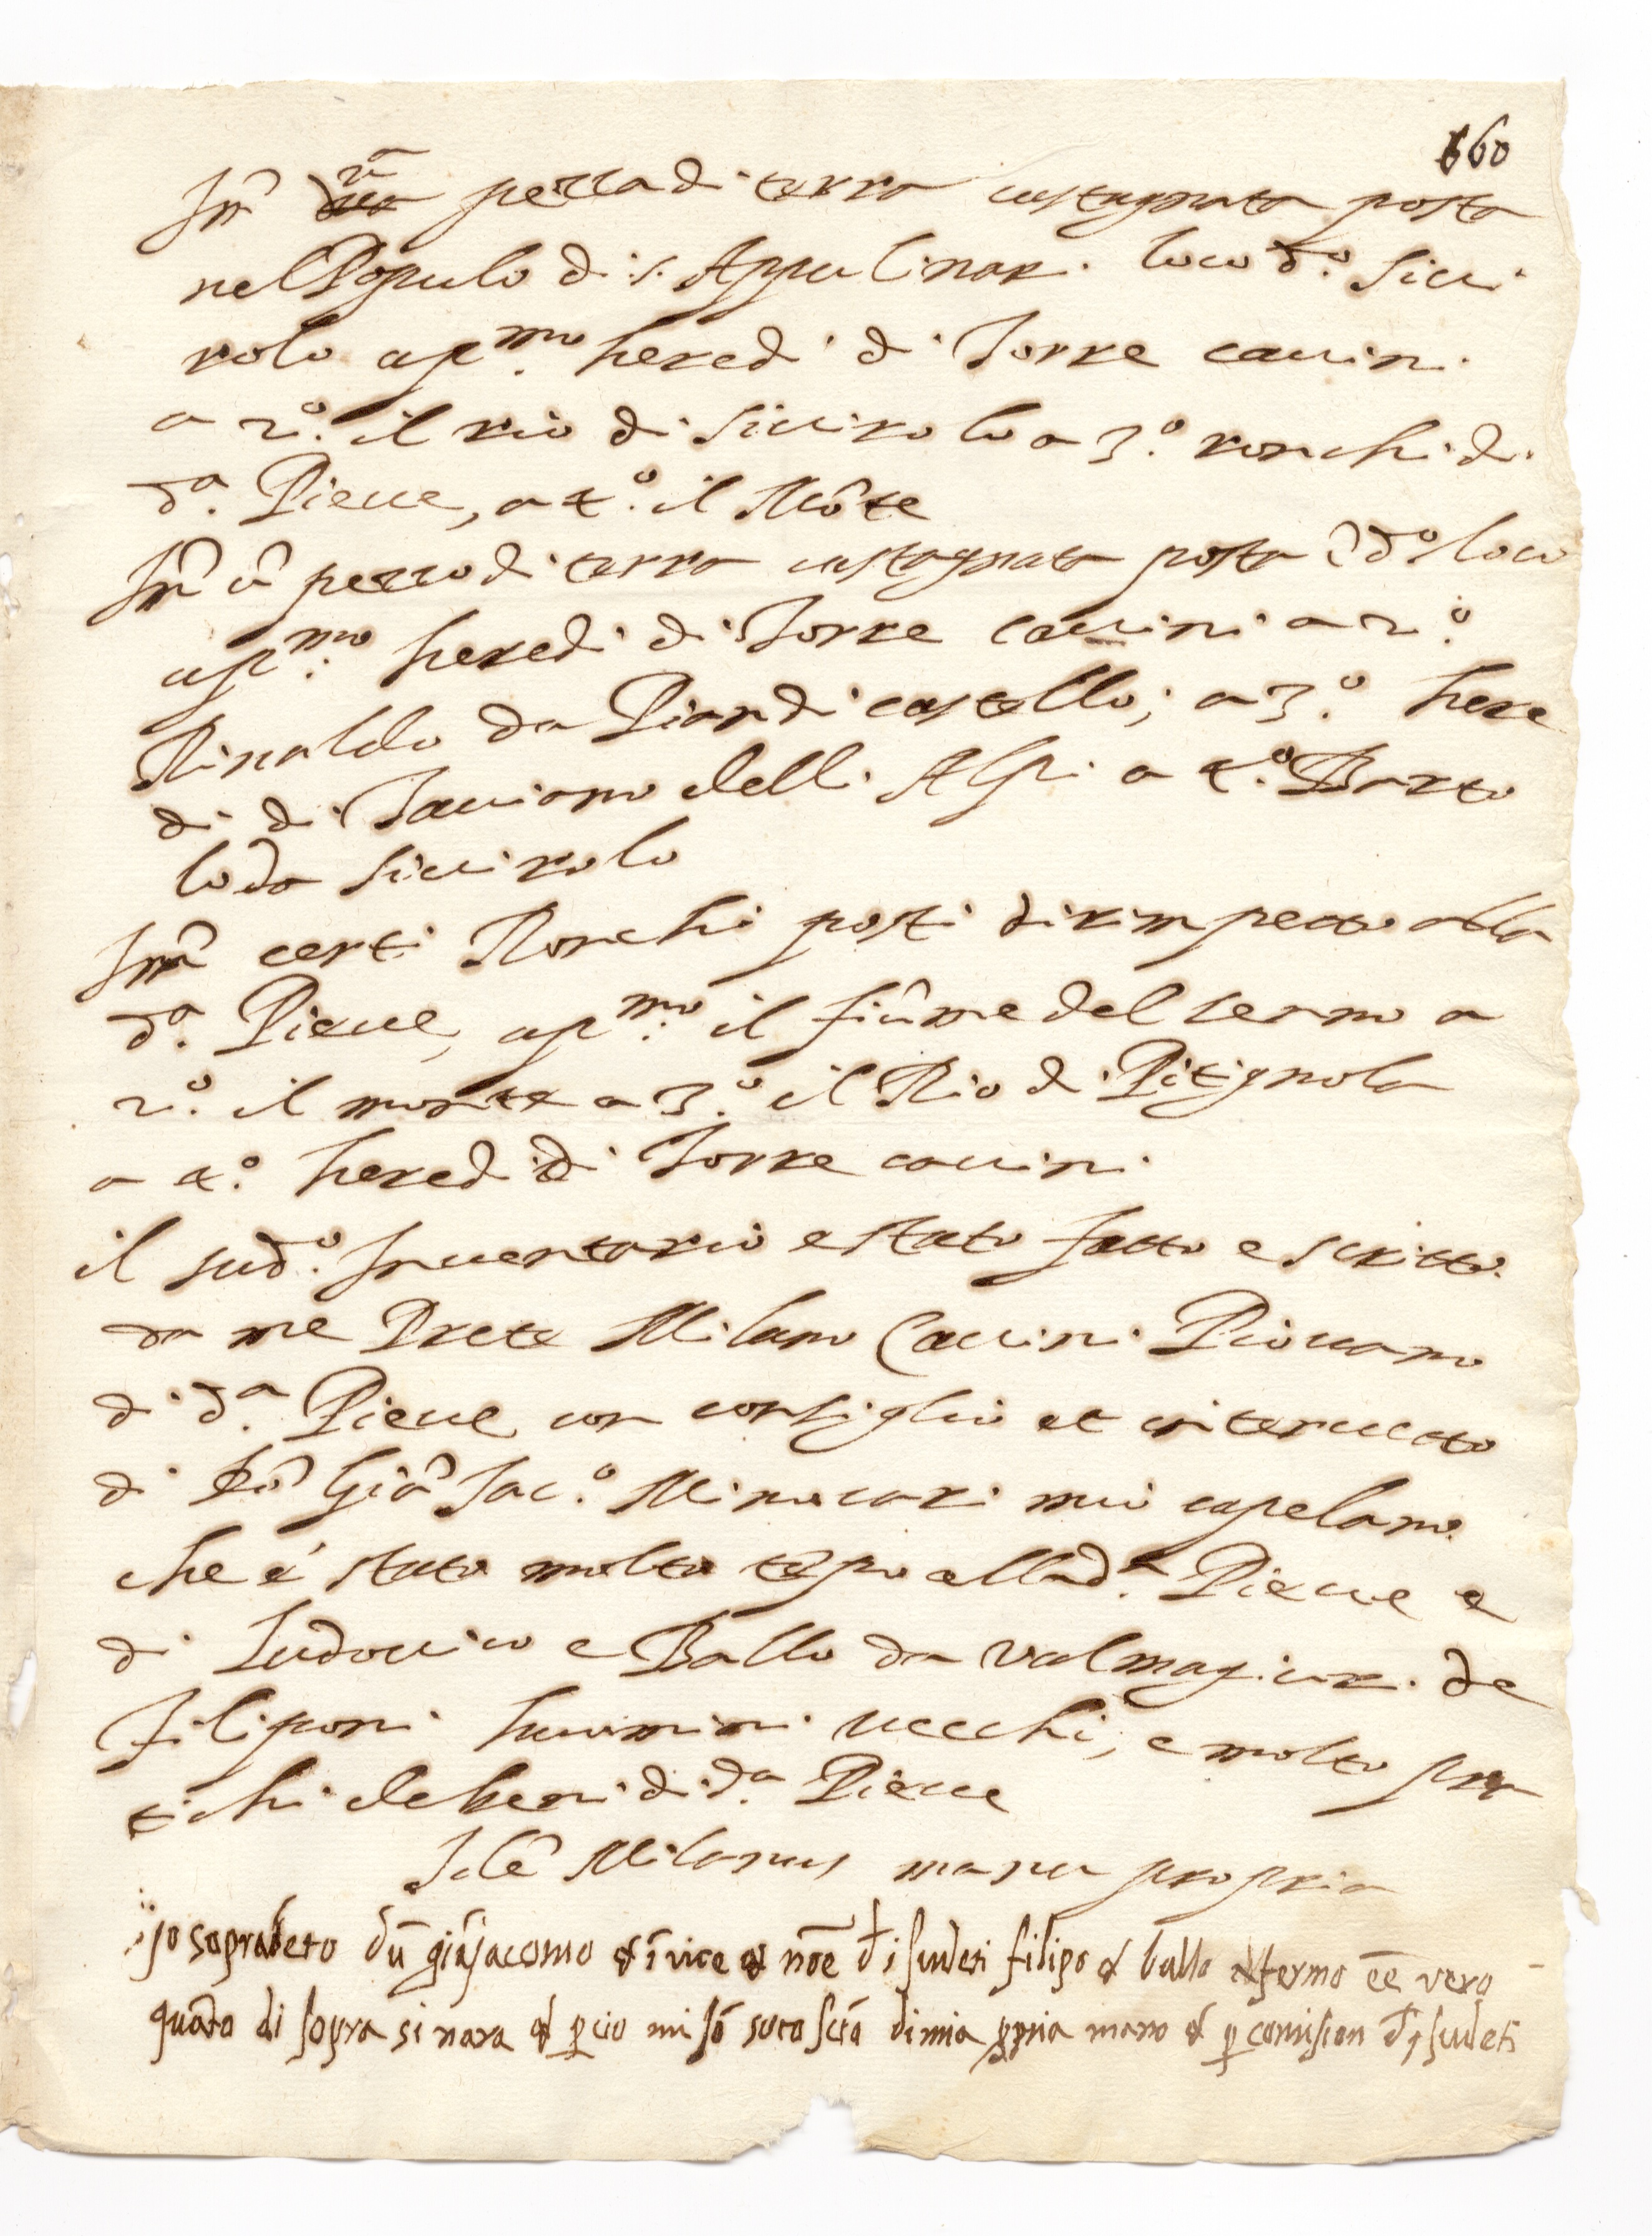 160
Itm̃ ũa pezza di terra castagnata posta
nel Populo di s. Appulinar. loco d.º Sivi
rolo ap.mo heredi di Torre Cavini.
a 2.º il rio di Sivirolo a 3.º ronchi di
d.a Pieve, a 4.º il Mõte
Itm̃ ũ pezzo di terra castagnata posta ĩ d.º loco
ap.mo heredi di Torre cavini a 2.º
Rinaldo da Pian di castello; a 3.º here
di di Taviano delli Alpi a 4.º Barto
lo da Sivirolo
Itm̃ certi Ronchi posti dirimpetto alla
d.a Pieve, ap.mo il fiũme del Senno a
2.º il monte a 3.º il Rio di Pitignola
a 4.º heredi di Torre cavini
il sud.º Inventario e stato fatto e scritto
da me Prete Milano Cavini Piovano
di d.a Pieve con consiglio et intervento
di Dõ Giã Jac.º mio capelano
che é stato molto tẽpo alla d.a Pieve e
di Ludovico e Ballo da valmagior. de
Filiponi huomini vecchi, e molto pra
tichi de beni di d.a Pieve
Idẽ Milanus manu propria
Jo sopradeto dũ giãjacomo & ĩ vice & nõe d i sudeti filipo & ballo afermo eẽ vero
quãto di sopra si nara & p cio mi sõ soto scrõ di mia ppria mano & p comision d i sudeti